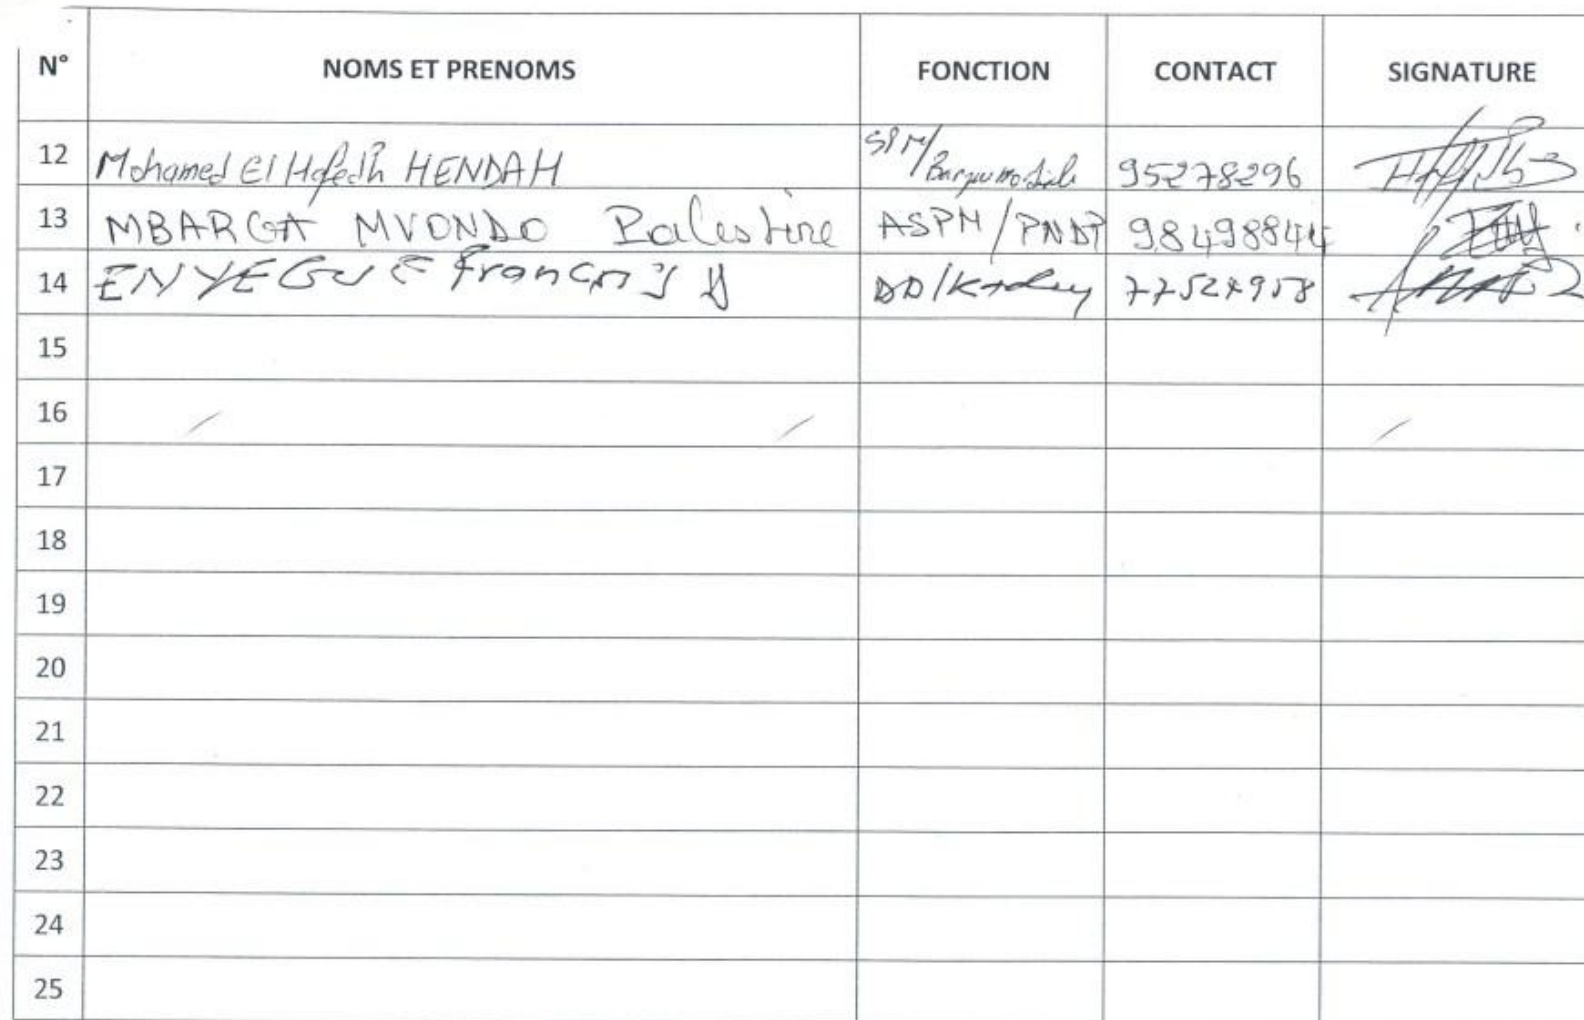 N° NOMS ET PRENOMS FONCTION CONTACT SIGNATURE
12 Mohamed El Hafedh HENDAH SPM/ 95278296
13 MBARGA MVONDO Palestine ASPM/PNDP 98498844
14 ENYEGUE Francis DD/Kadey
15
16
17
18
19
20
21
22
23
24
25